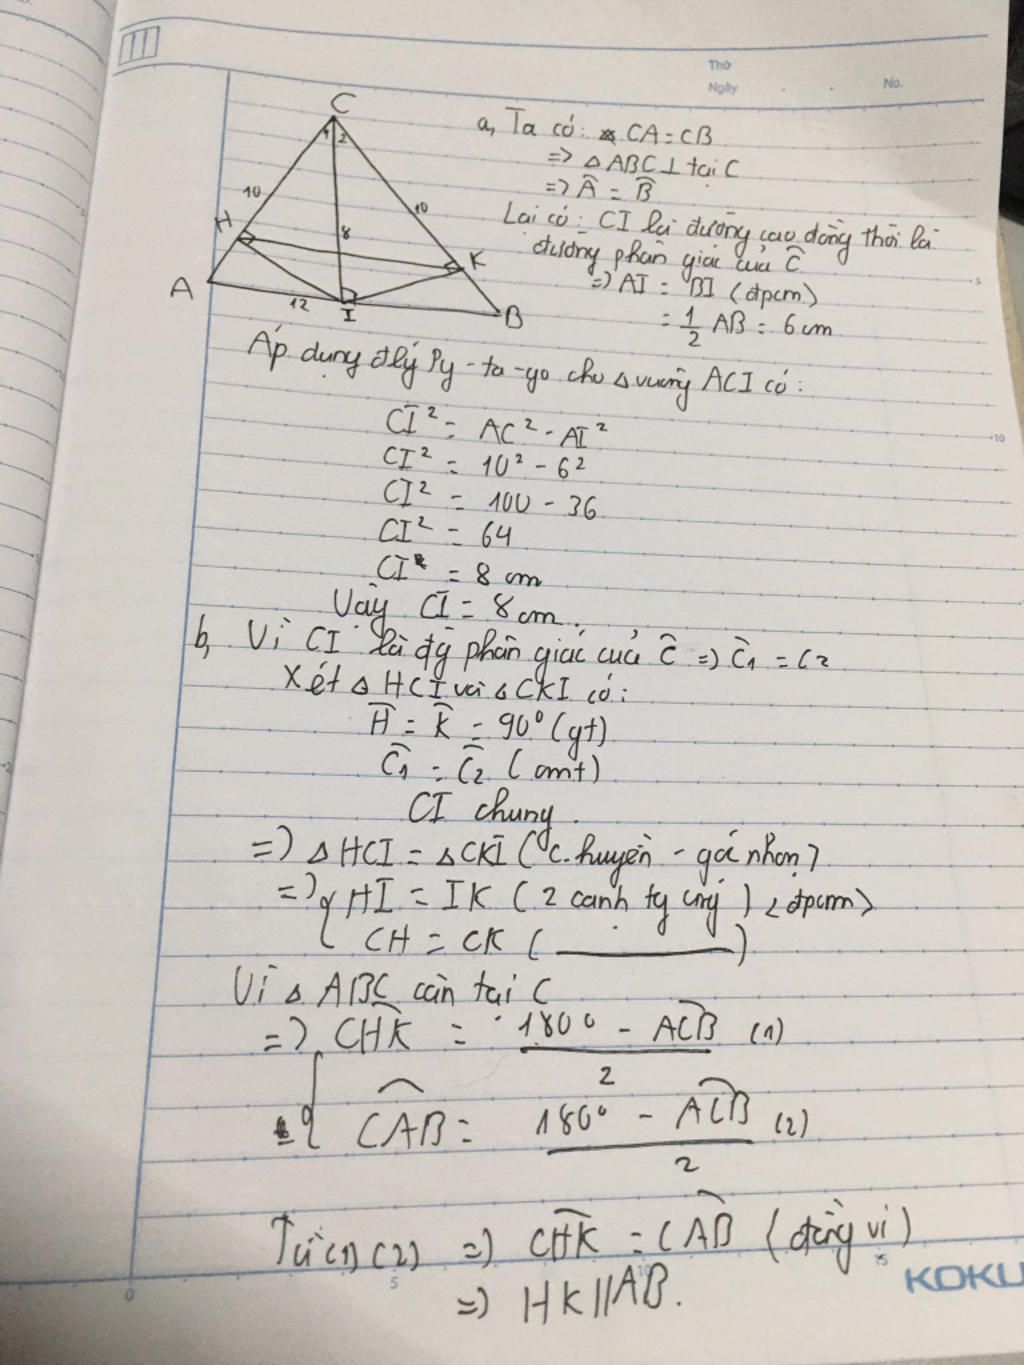 Thứ
Ngày . . No.
C
1 2
10
10
H
8
K
A
12
I
B
a, Ta có: CA = CB
=> △ ABC ⊥ tại C
=> Â = B̂
Lại có: CI là đường cao đồng thời là
đường phân giác của Ĉ
=> AI = BI (đpcm)
= 1/2 AB = 6 cm
Áp dụng đlý Py-ta-go cho △ vuông ACI có:
CI² = AC² - AI²
CI² = 10² - 6²
CI² = 100 - 36
CI² = 64
CI = 8 cm
Vậy CI = 8 cm.
b, Vì CI là đg phân giác của Ĉ => Ĉ1 = C2
Xét △ HCI và △ CKI có:
Ĥ = K̂ = 90° (gt)
Ĉ1 = Ĉ2 (cmt)
CI chung.
=> △ HCI = △ CKI (c.huyền - góc nhọn)
=> { HI = IK (2 cạnh tg ứng) (đpcm)
CH = CK ( ——— )
Vì △ ABC cân tại C
=> { CHK = 180° - ACB / 2 (1)
CAB = 180° - ACB / 2 (2)
Từ (1) (2) => CHK = CAB (đồng vị)
=> HK // AB.
0 5 10 15
5
10
KOKU